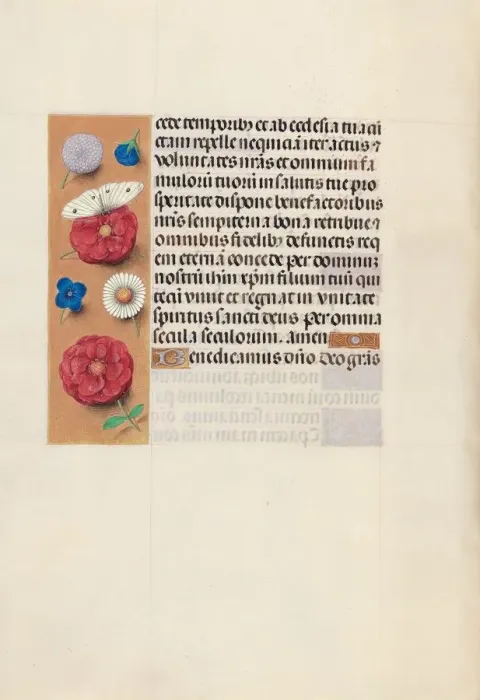 cede temporib; et ab ecclesia tua cū
ctam repelle nequiciā iter actus ⁊
voluntates nr̄as et omnium fa
mulorū tuorū in salutis tue pro
speritate dispone benefactoribus
nr̄is sempiterna bona retribue ⁊
omnibus fidelib; defunctis req
em eternā concede per dominū
nostrū ihm̄ xp̄m filium tuū qui
tecū viuit et regnat in vnitate
spiritus sancti deus per omnia
secula seculorum. amen
Benedicamus dn̄o deo grās